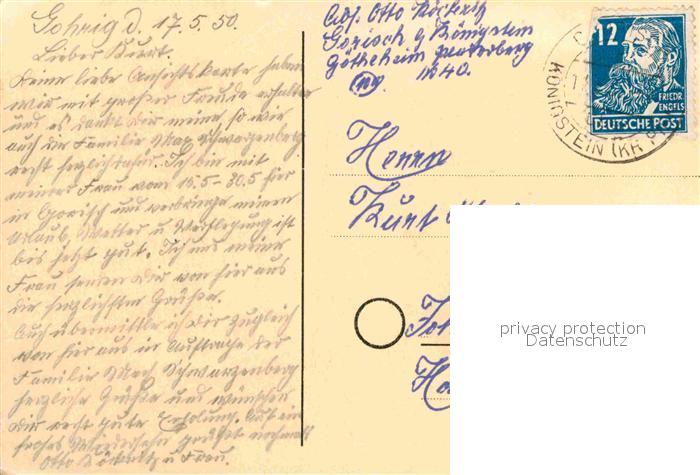 Gohrig d. 17.5.50.
Lieber Kurt.
Deine liebe Ansichtskarte haben
wir mit großer Freude erhalten
und es dankt Dir meine so wie
auch die Familie Max Schwarzenberg
recht herzlich dafür. Ich bin mit
meiner Frau vom 15.5-30.5 hier
in Gorisch und verbringe meinen
Urlaub, Wetter u Verpflegung ist
bis jetzt gut. Ich und meine
Frau senden Dir von hier aus
die herzlichsten Grüße.
Auch übermittle ich Dir zugleich
von hier aus im Auftrage der
Familie Max Schwarzenberg
herzliche Grüße und wünschen
Dir recht gute Erholung. Auf ein
frohes Wiedersehn grüßt nochmals
Otto u Frau.
Abs. Otto
Gorisch a/ Königstein
Götheheim
No 40.
12
FRIEDR.
ENGELS
DEUTSCHE POST
KÖNIGSTEIN (KR P
Herrn
Kurt
privacy protection
Datenschutz